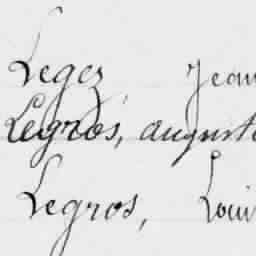 Legez Jean
Legros, auguste
Legros, Louis